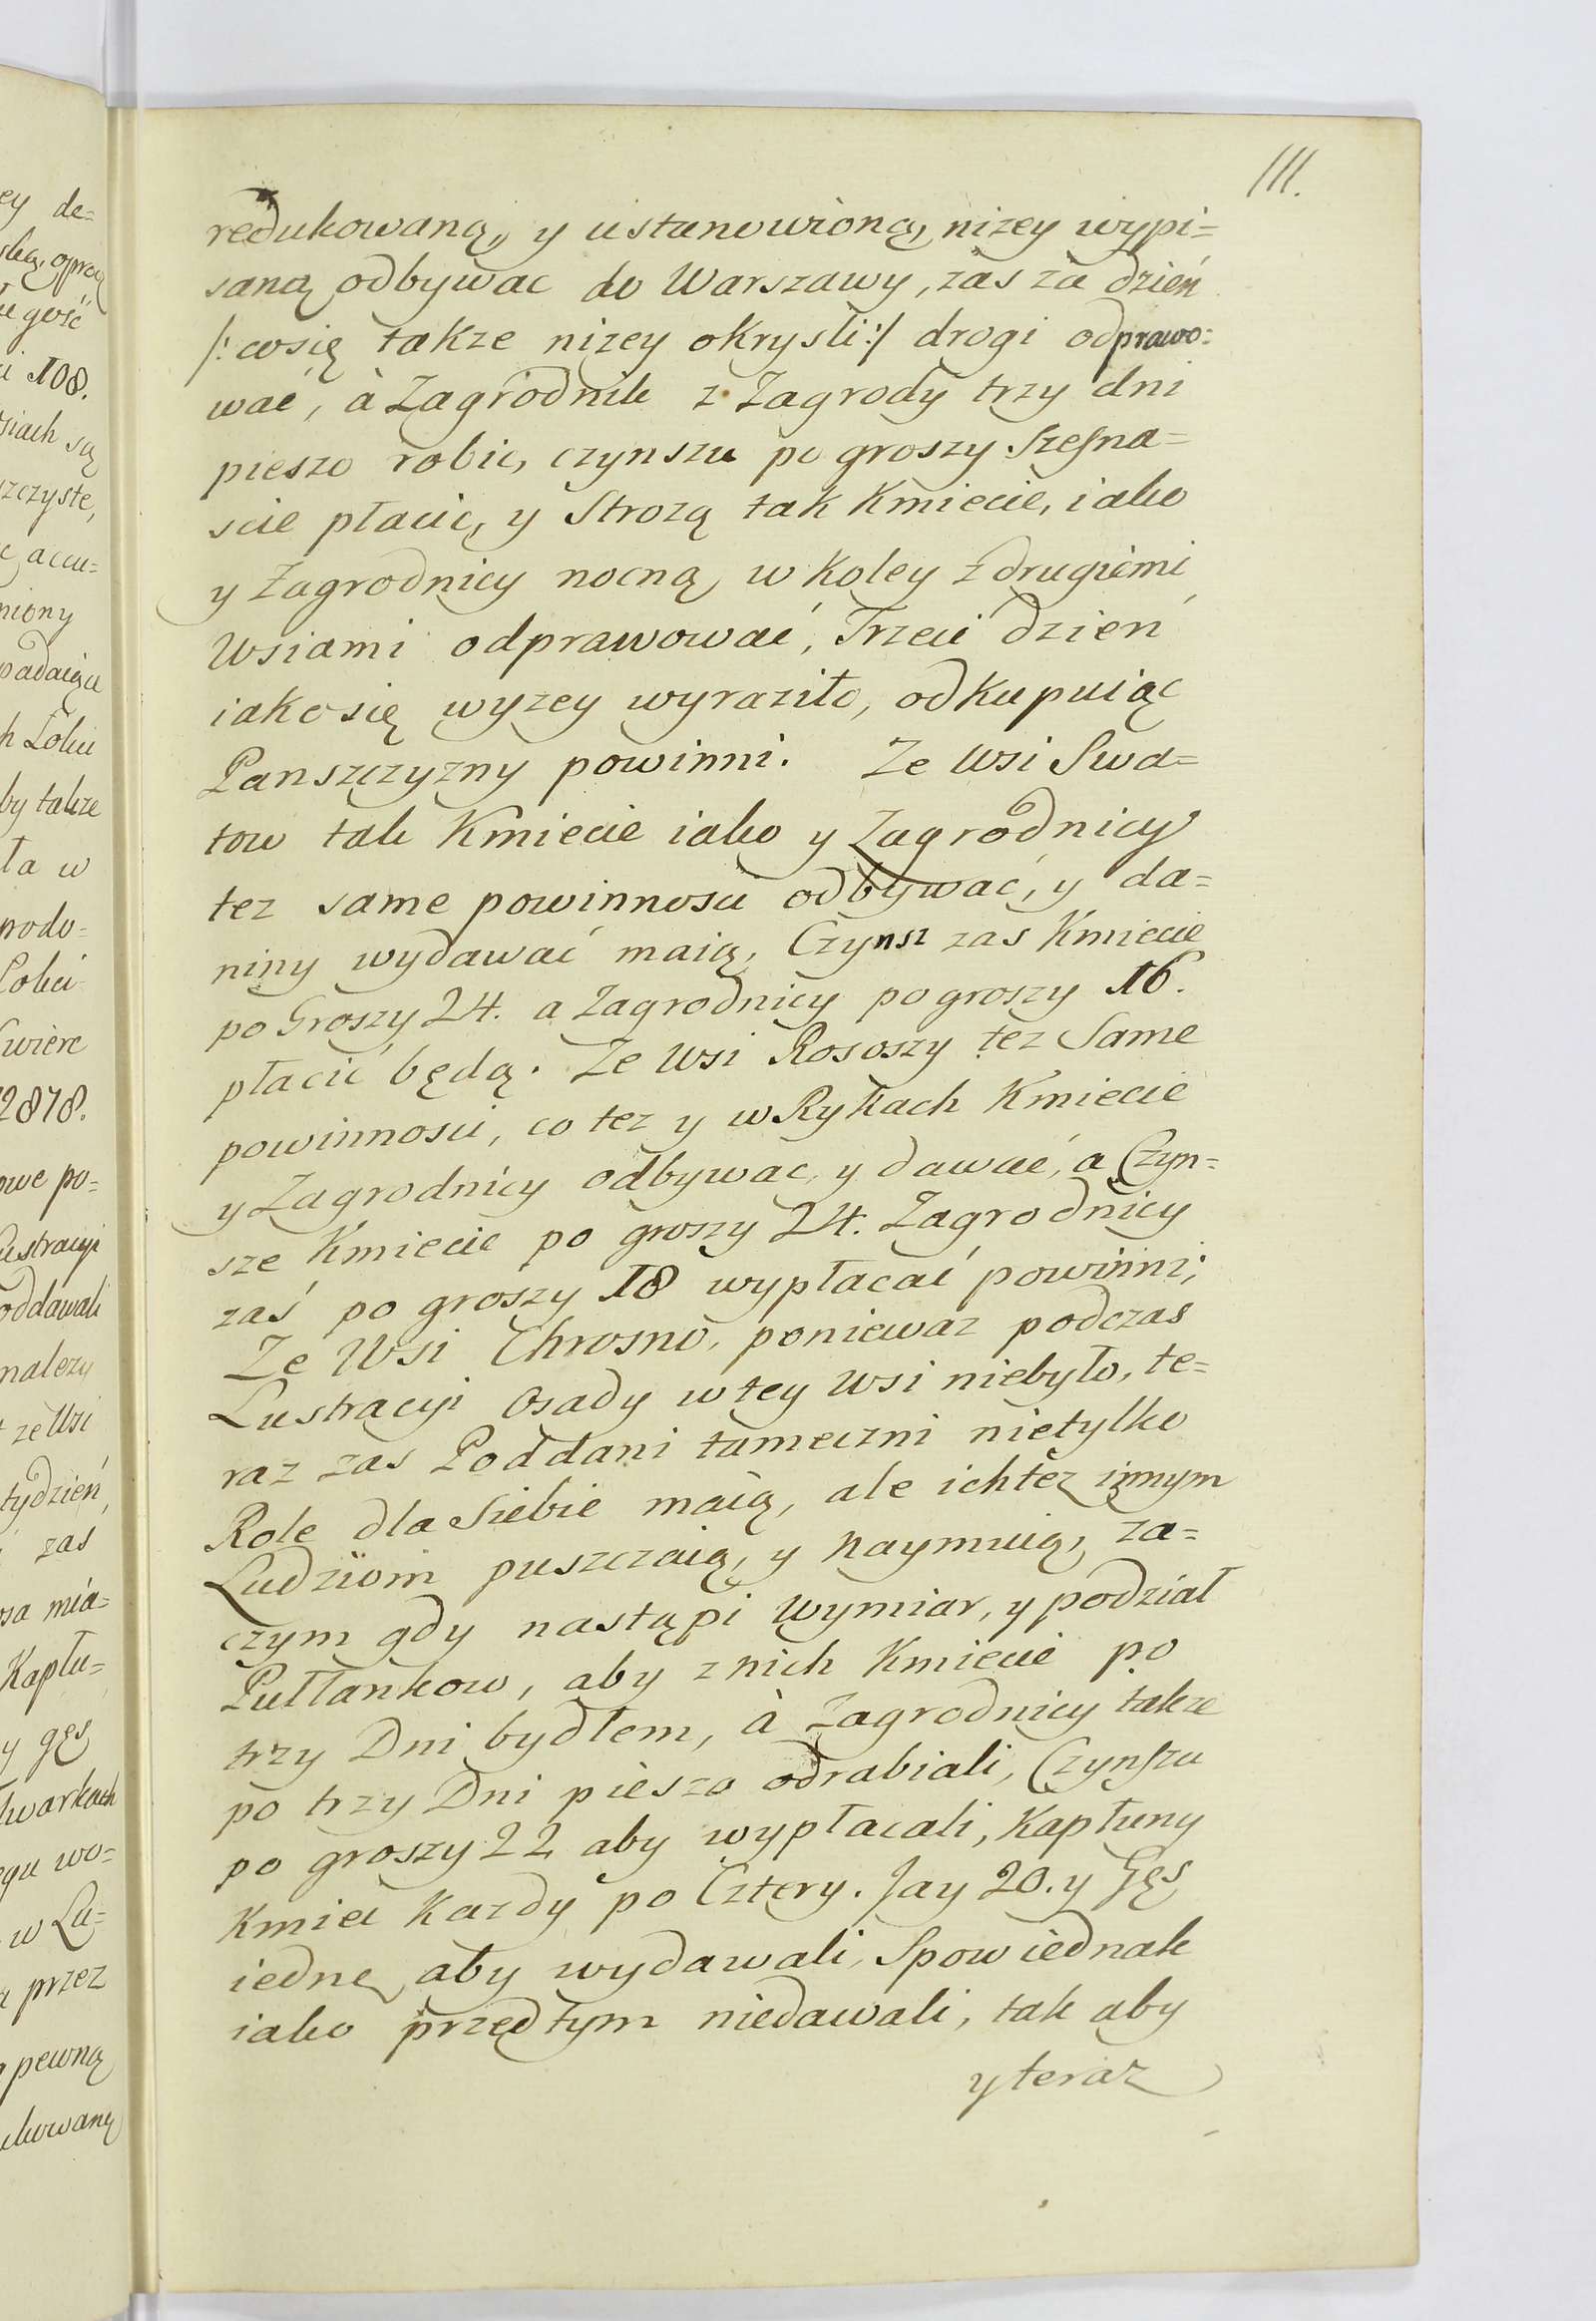 111.
redukowaną, y ustanowioną, nizey wypi=
saną odbywac do Warszawy, zas za dzień
/: co się takze nizey okrysli :/ drogi odprawo=
wać, à Zagrodnik z Zagrody trzy dni
pieszo robic, czynszu po groszy Szesna=
scie płacic, y Strozą tak Kmiecie, iako
y Zagrodnicy nocną w koley z drugiemi
Wsiami odprawować, Trzeci dzień
iako się wyzey wyraziło, odkupuiąc
Panszczyzny powinni. Ze Wsi Swa=
tow tak Kmiecie iako y Zagrodnicy
tez same powinnosci odbywać, y da=
niny wydawać maią, Czynsz zas Kmiecie
po Groszy 24. a Zagrodnicy po groszy 16.
płacić będą. Ze Wsi Rososzy tez Same
powinnosci, co tez y w Rykach Kmiecie
y Zagrodnicy odbywac, y dawać, a Czyn=
sze Kmiecie po groszy 24. Zagrodnicy
zaś po groszy 18 wypłacać powinni;
Ze Wsi Chrosno, poniewaz podczas
Lustracyi Osady w tey Wsi niebyło, te=
raz zas Poddani tameczni nietylko
Role dla Siebie maią, ale ich tez innym
Ludziom puszczaią, y naymuią, za=
czym gdy nastąpi Wymiar, y podział
Pułłankow, aby z nich Kmiecie po
trzy Dni bydłem, à Zagrodnicy takze
po trzy Dni pieszo odrabiali, Czynszu
po groszy 22 aby wypłacali, Kapłuny
Kmieć Kazdy po Cztery. Jay 20. y Gęs
iednę aby wydawali, Spow iednak
iako przedtym niedawali, tak aby
y teraz